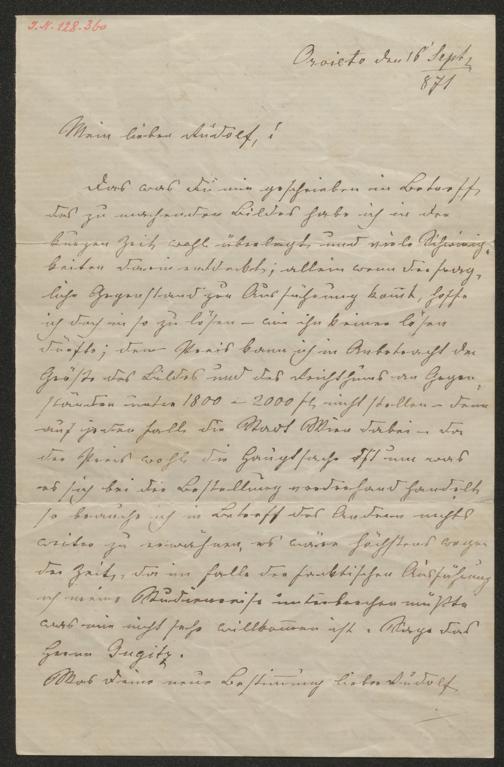 J.N. 128.360
Orvieto den 16' Sept.
871
Mein lieber Rudolf,!
Das was Du mir geschrieben im Betreff
des zu machenden Bildes habe ich in der
kurzen Zeit wohl überlegt und viele Schwierig-
keiten darin entdeckt; allein wenn der frag-
liche Gegenstand zur Ausführung kom̅t, hoffe
ich doch in so zu lösen – wie ihn keiner lösen
dürfte; den Preis kann ich in Anbetracht der
Größe des Bildes und des Reichthums an Gegen-
ständen unter 1800 – 2000 fl nicht stellen – denn
auf jeden Falle die Stadt Wien dabei – da
der Preis wohl die Hauptsache ist um was
es sich bei der Bestellung vorderhand handelt
so brauche ich in Betreff des Andern nichts
weiter zu erwähnen, es wäre höchstens wegen
der Zeit, da im Falle der faktischen Ausführung
ich meine Studienreise unterbrechen müßte
was mir nicht sehr willkommen ist. Sage das
Herrn
Was Deine neue Bestimmung lieber Rudolf